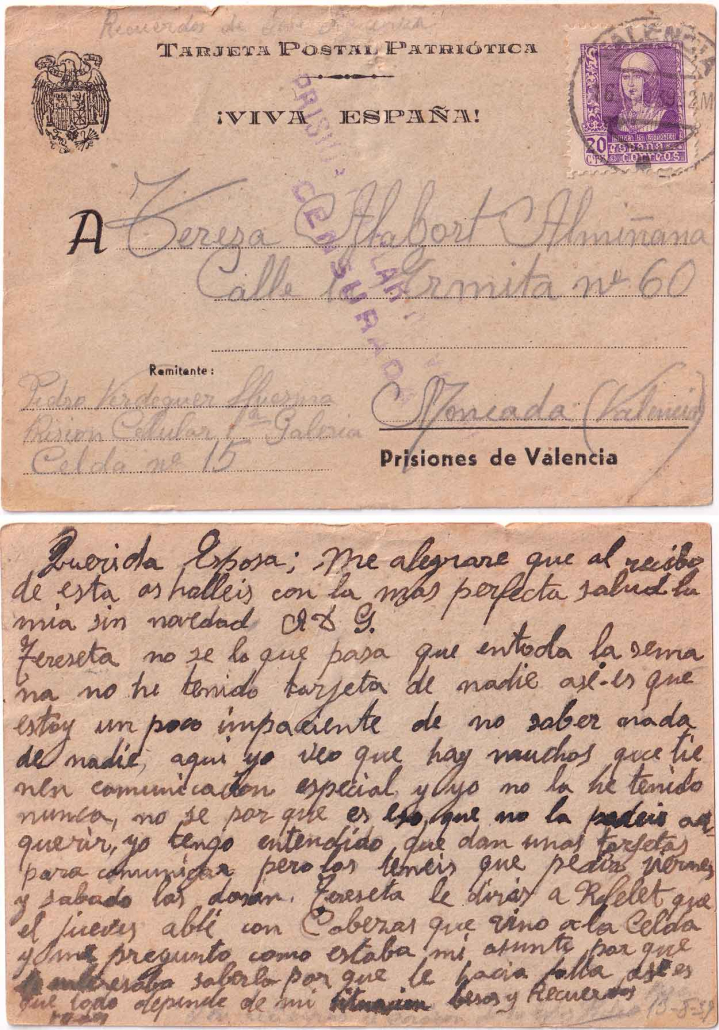 Recuerdos de
TARJETA POSTAL PATRIÓTICA
¡VIVA ESPAÑA!
VALENCIA
20
CTS
ESPAÑA
CORREOS
PRISION CELULAR
CENSURADA
A Tereza Alabort Almiñana
Calle la Ermita nº 60
Remitente:
Pedro Verdeguer
Prision Celular 1ª Galeria
Celda nº 15
Moncada (Valencia)
Prisiones de Valencia
Querida Esposa; Me alegrare que al recibo
de esta os halleis con la mas perfecta salud la
mia sin novedad A D G.
Tereseta no se lo que pasa que entoda la sema
na no he tenido tarjeta de nadie asi-es que
estoy un poco impaciente de no saber nada
de nadie, aqui yo veo que hay muchos que tie
nen comunicacion especial y yo no la he tenido
nunca, no se por que es eso, que no la podeis ad
querir, yo tengo entendido que dan unas tarjetas
para comunicar pero las teneis que pedir viernes
y sabado las donan. Tereseta le diras a Rafelet que
el jueves ablé con Cabezas que vino a la Celda
y me pregunto como estaba mi asunto por que
interesaba saberlo por que le hacia falta asi es
que todo depende de mi situacion besos y Recuerdos
todos